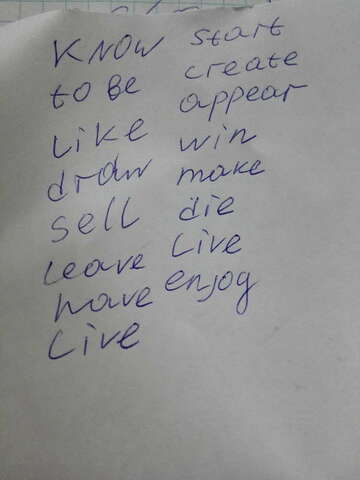 know
to be
like
draw
sell
leave
have
live
start
create
appear
win
make
die
live
enjoy